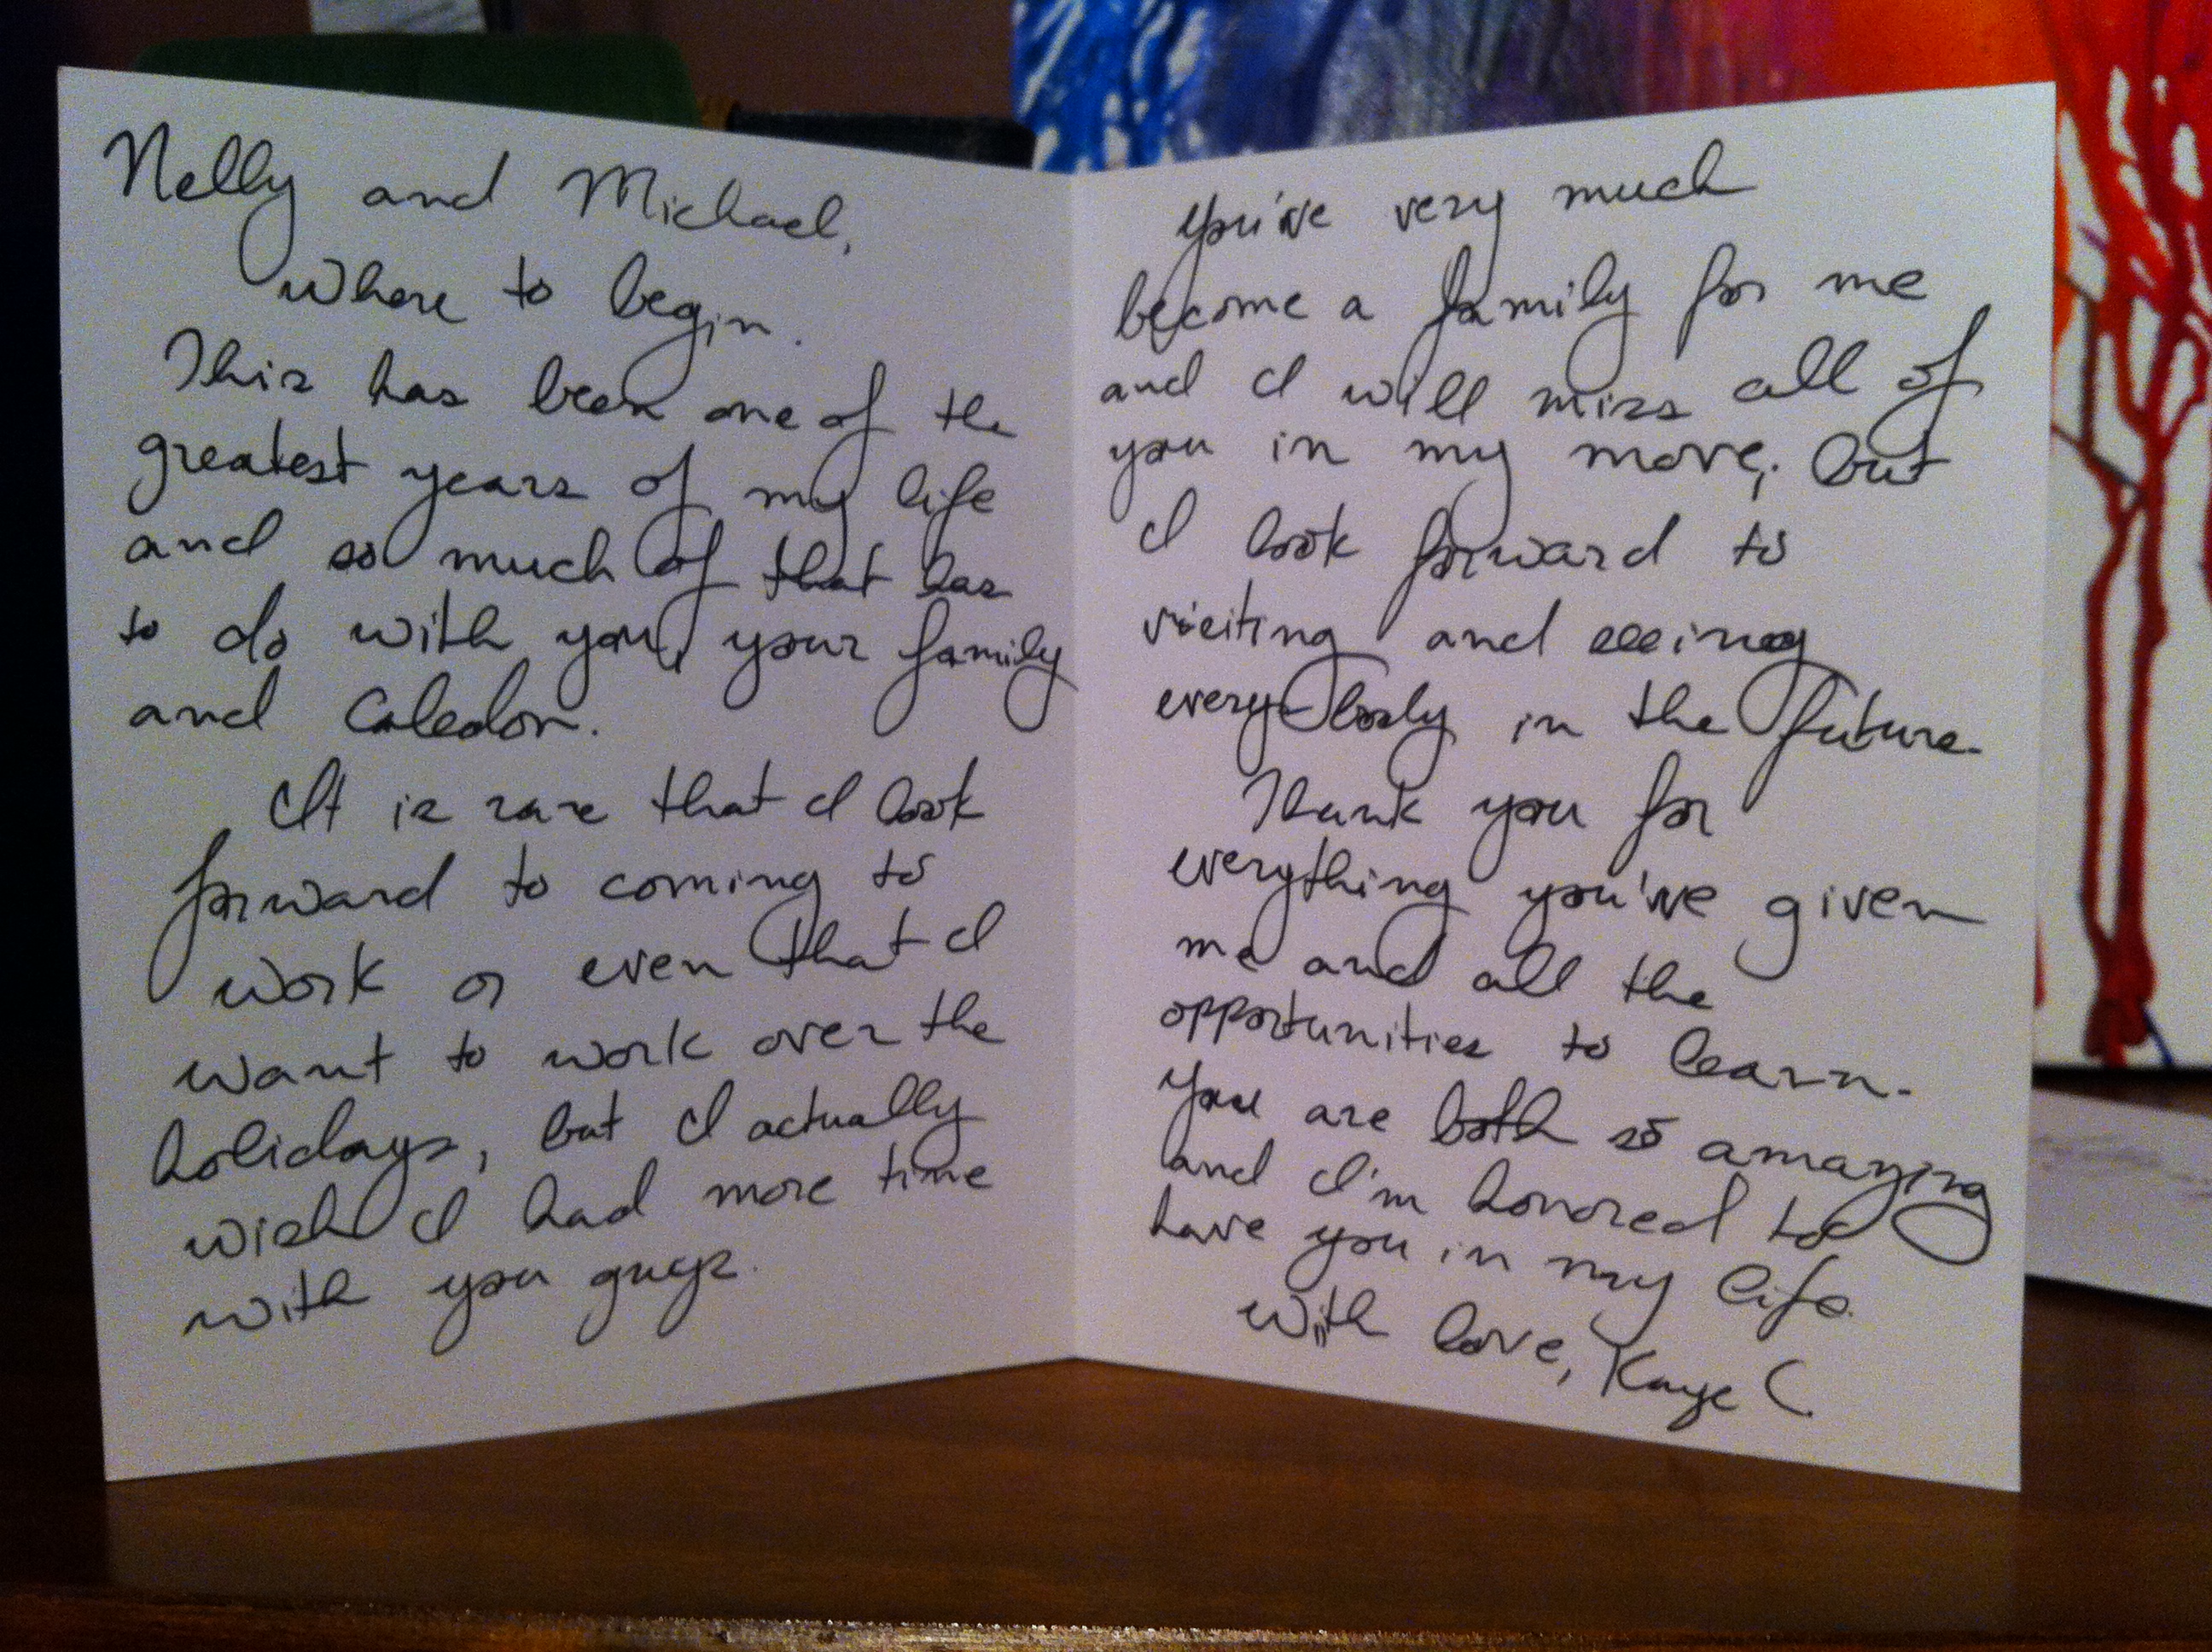 Nelly and Michael,
Where to begin.
This has been one of the
greatest years of my life
and so much of that has
to do with you, your family
and Caledon.
It is rare that I look
forward to coming to
work or even that I
want to work over the
holidays, but I actually
wish I had more time
with you guys.
You've very much
become a family for me
and I will miss all of
you in my move, but
I look forward to
visiting and seeing
everybody in the future.
Thank you for
everything you've given
me and all the
opportunities to learn.
You are both so amazing
and I'm honored to
have you in my life.
With love, Kaye C.